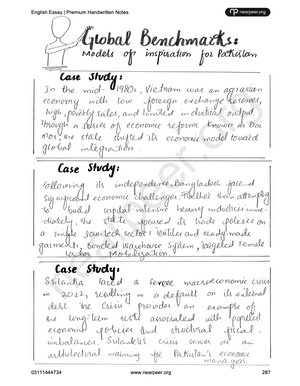 English Essay | Premium Handwritten Notes
nearpeer.org
Global Benchmarks:
Models of inspiration for Pakistan
Case Study:
In the mid- 1980s, Vietnam was an agrarian
economy with low foreign exchange reserves,
high poverty rates, and limited industrial output
through a series of economic reforms known as Doi
Moi, the state shifted its economic model toward
global integration.
Case Study:
Following its independence, Bangladesh faced
significant economic challenges, Rather than attempting
to build capital-intensive heavy industries imme
diately, the state focused its trade policies on
a single low-tech sector: textiles and ready-made
garments, Bonded Warehouse System, Targeted Female
Labor Mobilization
Case Study:
Srilanka faced a severe macroeconomic crisis
in 2022, resulting in a default on its external
debt. The Crisis provides an example of
the long-term risks associated with populist
economic policies and structural fiscal
imbalances, Srilanka's crisis serves as an
architectural warning for Pakistan's economic
managers.
03111444734
www.nearpeer.org
287